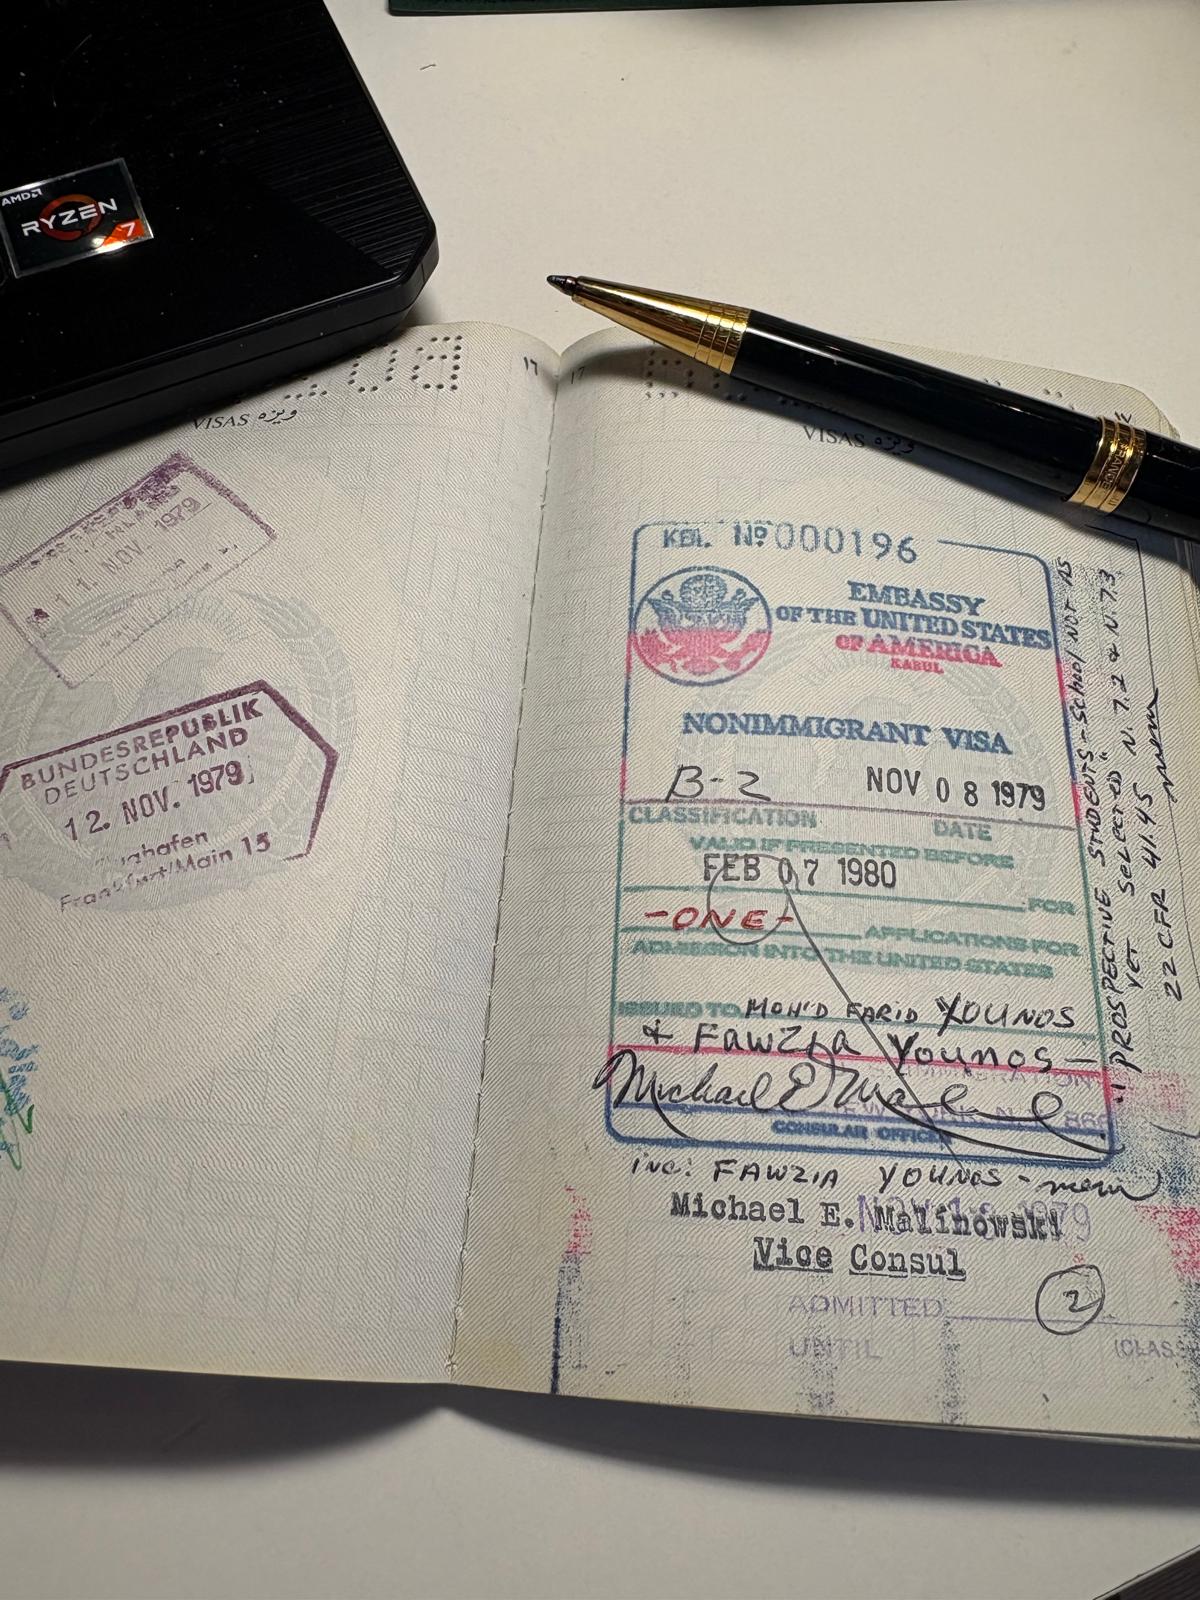 AMD
RYZEN
7
۱۶
VISAS ویزه
1 1. NOV. 1979
BUNDESREPUBLIK
DEUTSCHLAND
12. NOV. 1979
Flughafen
Frankfurt/Main 15
17
VISAS ویزه
FRANCE
KBL. Nº 000196
EMBASSY
OF THE UNITED STATES
OF AMERICA
KABUL
NONIMMIGRANT VISA
B-2 NOV 08 1979
CLASSIFICATION DATE
VALID IF PRESENTED BEFORE
FEB 07 1980 FOR
-ONE- APPLICATIONS FOR
ADMISSION INTO THE UNITED STATES
ISSUED TO MOH'D FARID YOUNOS
& FAWZIA YOUNOS-
IMMIGRATION
NEW YORK, N.Y. 868
CONSULAR OFFICER
inc: FAWZIA YOUNOS - mem
Michael E. Malinowski
NOV 1979
Vice Consul
2
ADMITTED
UNTIL (CLASS
PROSPECTIVE STUDENTS - School NOT AS
YET SELECTED" N. 7.2 & N. 7.3
22 CFR 41.45 mem